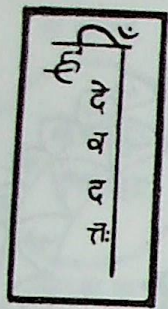 ह्रीँ
दे व द त्तः